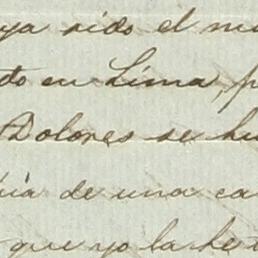 ya sido el
to en Lima, p
Dolores se hu
de una ca
que yo